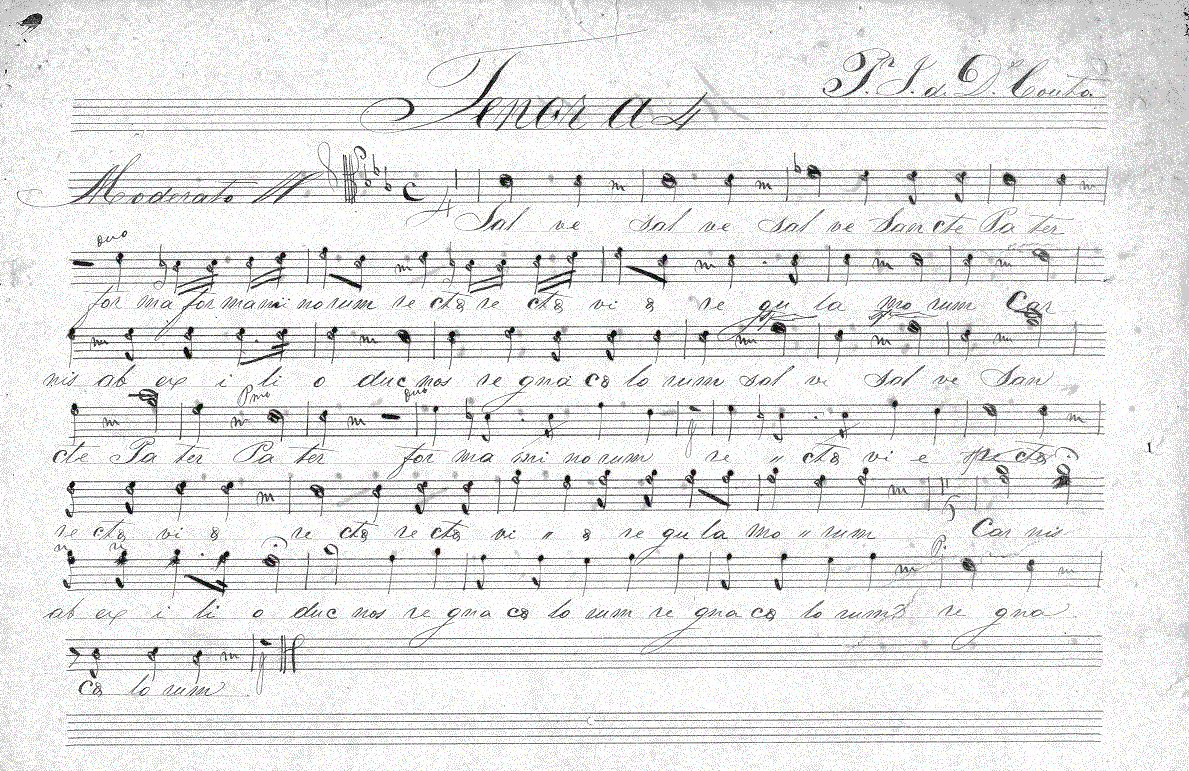 Tenor a 4
Moderato
4
Sal ve sal ve sal ve Sancte Pa ter
duo
for ma for ma mi no rum re cta re cta vi a re gu la mo rum Car
nis ab ex i li o duc nos re gna cœ lo rum sal ve Sal ve San
cte Pa ter Pa ter for ma mi no rum re " cta vi e recta
duo
re cta vi a re cta re cta vi " a re gu la mo " rum Car nis
ab ex i li o duc nos re gna cœ lo rum re gna cœ lo rum re gna
cœ lo rum